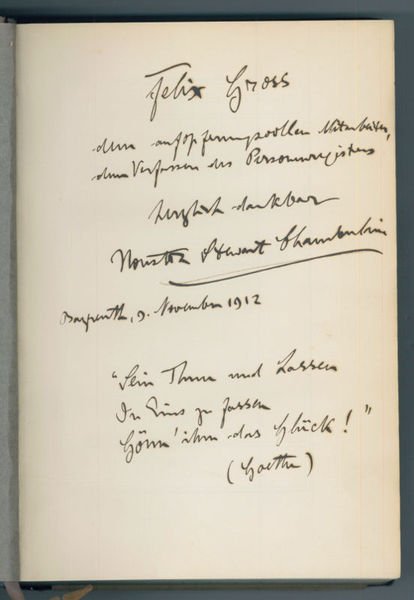 Felix Gross
dem aufopferungsvollen Mitarbeiter,
dem Verfasser des Personenregisters
herzlich dankbar
Houston Stewart Chamberlain
Bayreuth, 9. November 1912
"Sein Thun und Lassen
In Eins zu fassen
Gönn' ihm das Glück!"
(Goethe)